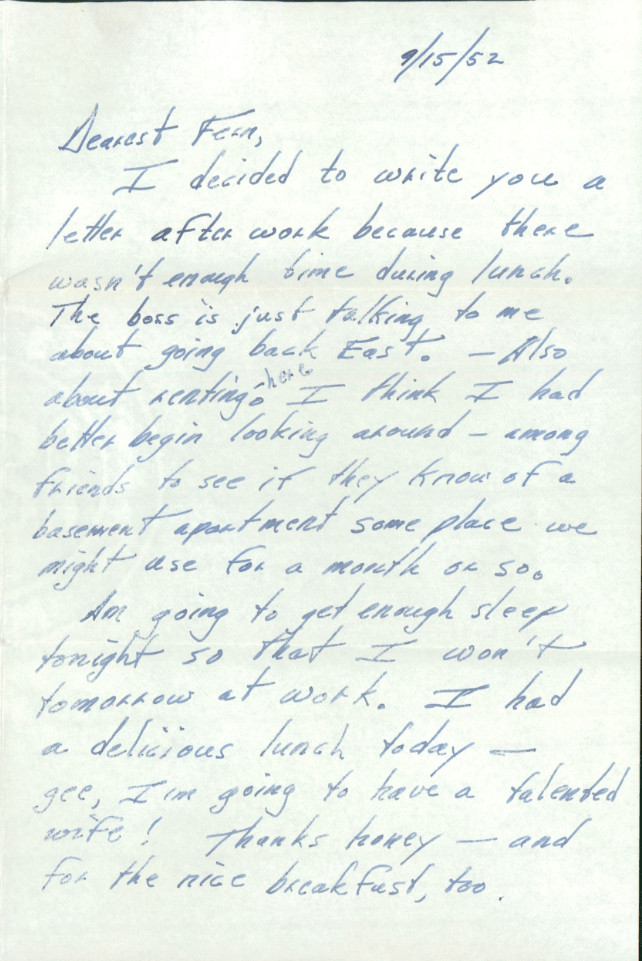 9/15/52
Dearest Fern,
I decided to write you a
letter after work because there
wasn't enough time during lunch.
The boss is just talking to me
about going back East. – Also
about renting here. I think I had
better begin looking around – among
friends to see if they know of a
basement apartment some place we
might use for a month or so.
Am going to get enough sleep
tonight so that I won't
tomorrow at work. I had
a delicious lunch today –
gee, I'm going to have a talented
wife! Thanks honey – and
for the nice breakfast, too.